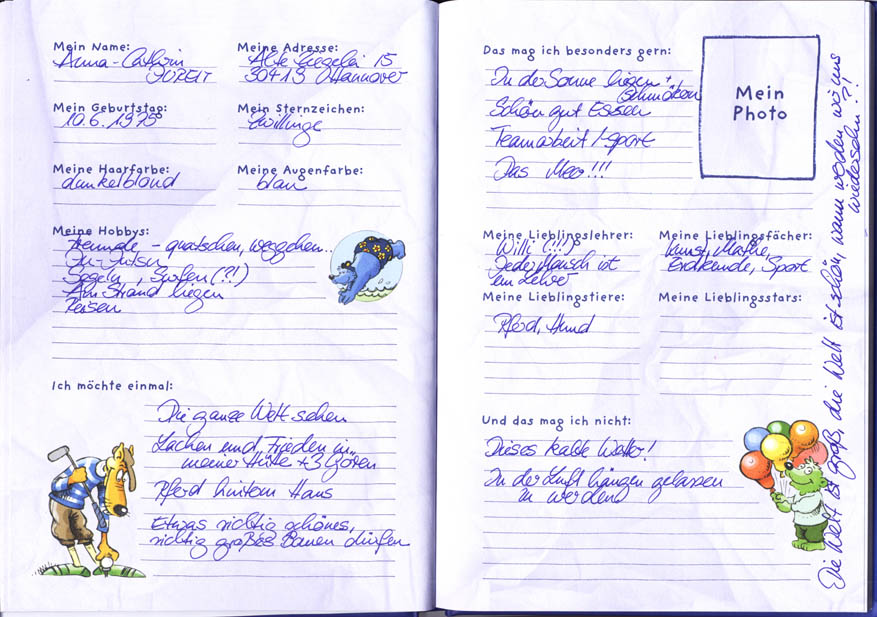 Mein Name:
Anna-Cathrin
Meine Adresse:
Alte Ziegelei 15
30419 Hannover
Mein Geburtstag:
10.6.1975
Mein Sternzeichen:
Zwillinge
Meine Haarfarbe:
dunkelblond
Meine Augenfarbe:
blau
Meine Hobbys:
Freunde - quatschen, weggehen..
Ju-Jutsu
Segeln, Surfen (?!)
Am Strand liegen
Reisen
Ich möchte einmal:
Die ganze Welt sehen
Lachen und Frieden in
meiner Hütte + 3 Gören
Pferd hinterm Haus
Etwas richtig schönes,
richtig großes Bauen dürfen
Das mag ich besonders gern:
In der Sonne liegen +
Schmökern
Schön gut Essen
Teamarbeit /-sport
Das Meer!!!
Mein
Photo
Meine Lieblingslehrer:
Willi (!!!)
Jeder Mensch ist
ein Lehrer
Meine Lieblingsfächer:
Kunst, Mathe,
Erdkunde, Sport
Meine Lieblingstiere:
Pferd, Hund
Meine Lieblingsstars:
Und das mag ich nicht:
Dieses kalte Wetter!
In der Luft hängen gelassen
zu werden
Die Welt ist groß, die Welt ist schön, wann werden wir uns
wiedersehn?!